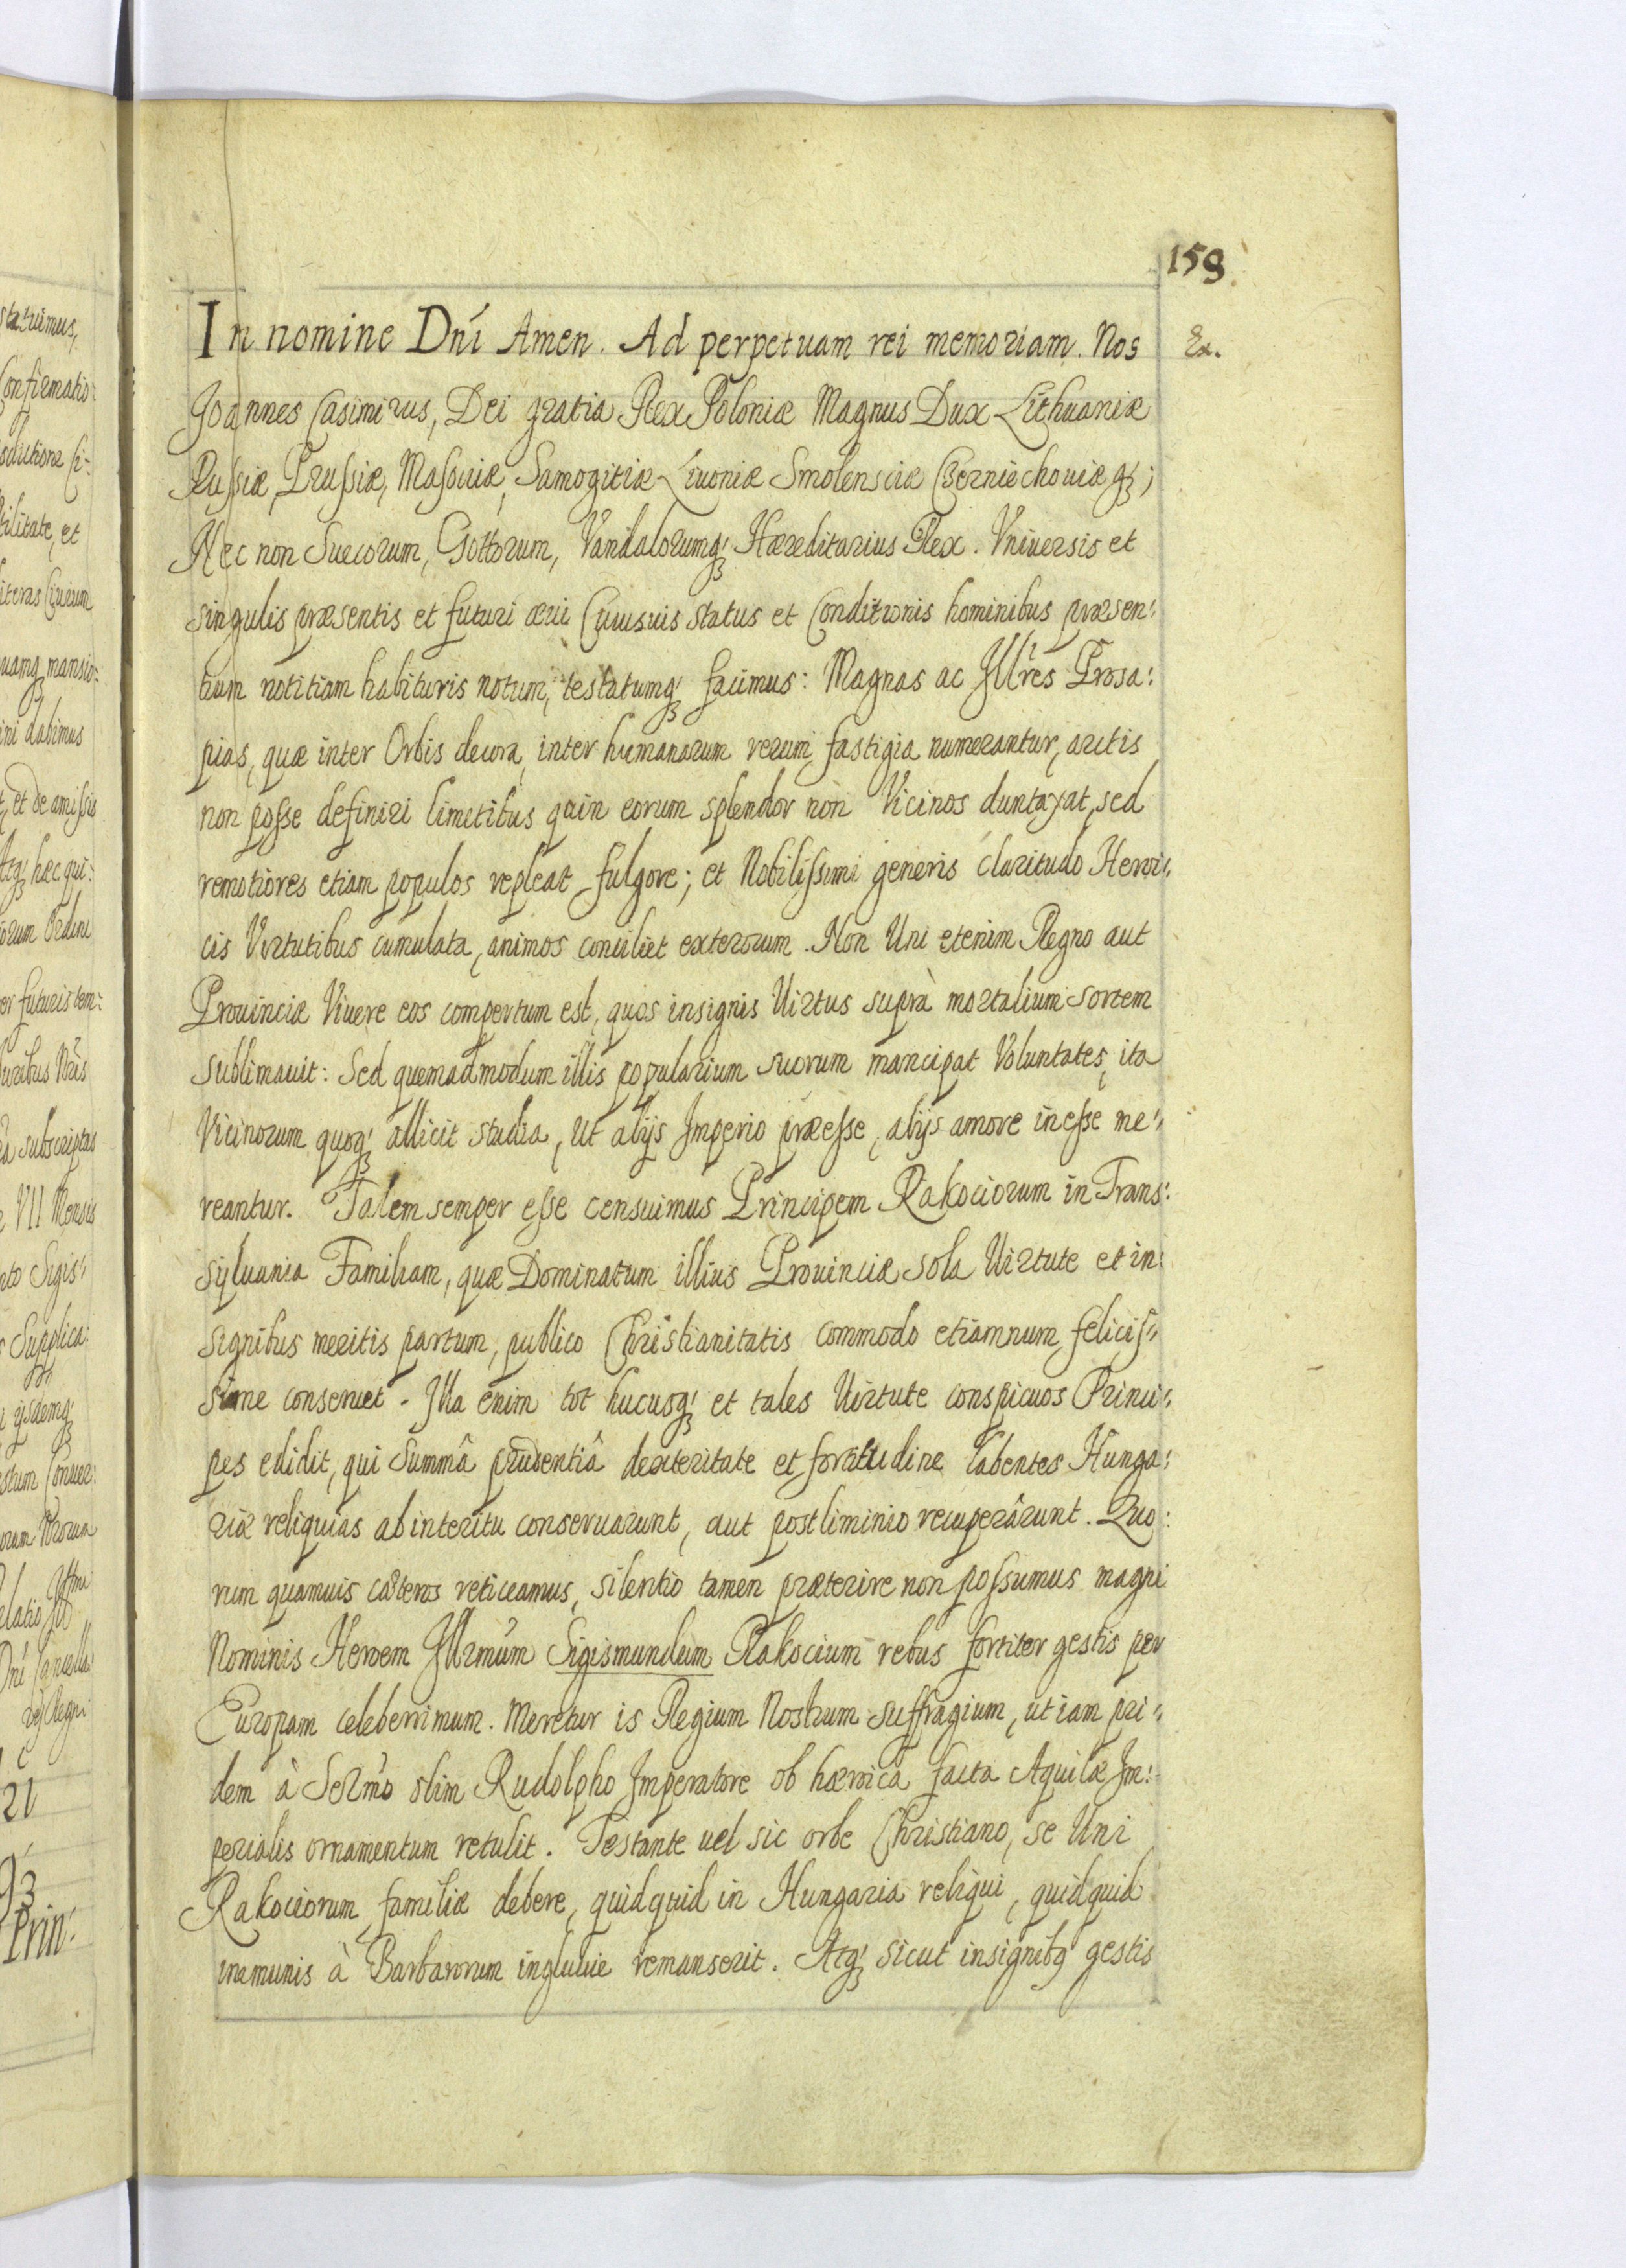 159.
In nomine Dni Amen. Ad perpetuam rei memoriam. Nos
Ex.
Joannes Casimirus, Dei gratia Rex Poloniæ Magnus Dux Lithuaniæ
Russiæ, Prussiæ, Masouiæ, Samogitiæ Liuoniæ Smolensciæ Czerniechouiæ qꝫ;
Nec non Suecorum, Gottorum, Vandalorumqꝫ Hæreditarius Rex. Vniuersis et
singulis præsentis et futuri æui Cuiusuis status et Conditionis hominibus præsen:
tium notitiam habituris notum, testatumqꝫ facimus: Magnas ac Jllres Prosa:
pias, quæ inter Orbis decora, inter humanarum rerum fastigia numerantur, arctis
non posse definiri limitibus quin eorum splendor non Vicinos duntaxat, sed
remotiores etiam populos repleat fulgore; et Nobilissimi generis claritudo Heroi:
cis Virtutibus cumulata, animos conciliet exterorum. Non Uni etenim Regno aut
Prouinciæ Viuere eos compertum est, quos insignis Uirtus suprà mortalium sortem
sublimauit: Sed quemadmodum illis popularium suorum mancipat Voluntates, ita
Vicinorum quoqꝫ allicit studia, ut alijs Jmperio præesse, alijs amore inesse me:
reantur. Talem semper esse censuimus Principem Rakociorum in Trans:
syluania Familiam, quæ Dominatum illius Prouinciæ sola Uirtute et in:
signibus meritis partum, publico Christianitatis commodo etiamnum felicis:
sime conseruet. Jlla enim tot hucusqꝫ et tales Uirtute conspicuos Princi:
pes edidit, qui Summâ prudentiâ dexteritate et fortitudine labentes Hunga:
riæ reliquias ab interitu conseruarunt, aut postliminio recuperârunt. Quo:
rum quamuis cæteros reticeamus, silentio tamen præterire non possumus magni
Nominis Heroem Jllrmum Sigismundum Rakocium rebus fortiter gestis per
Europam celeberrimum. Meretur is Regium Nostrum suffragium, ut iam pri:
dem à Sermo olim Rudolpho Jmperatore ob hæroica facta Aquilæ Jm:
perialis ornamentum retulit. Testante uel sic orbe Christiano, se Uni
Rakociorum familiæ debere, quidquid in Hungaria reliqui, quidquid
immunis à Barbarorum ingluuie remanserit. Atqꝫ sicut insignibꝫ gestis